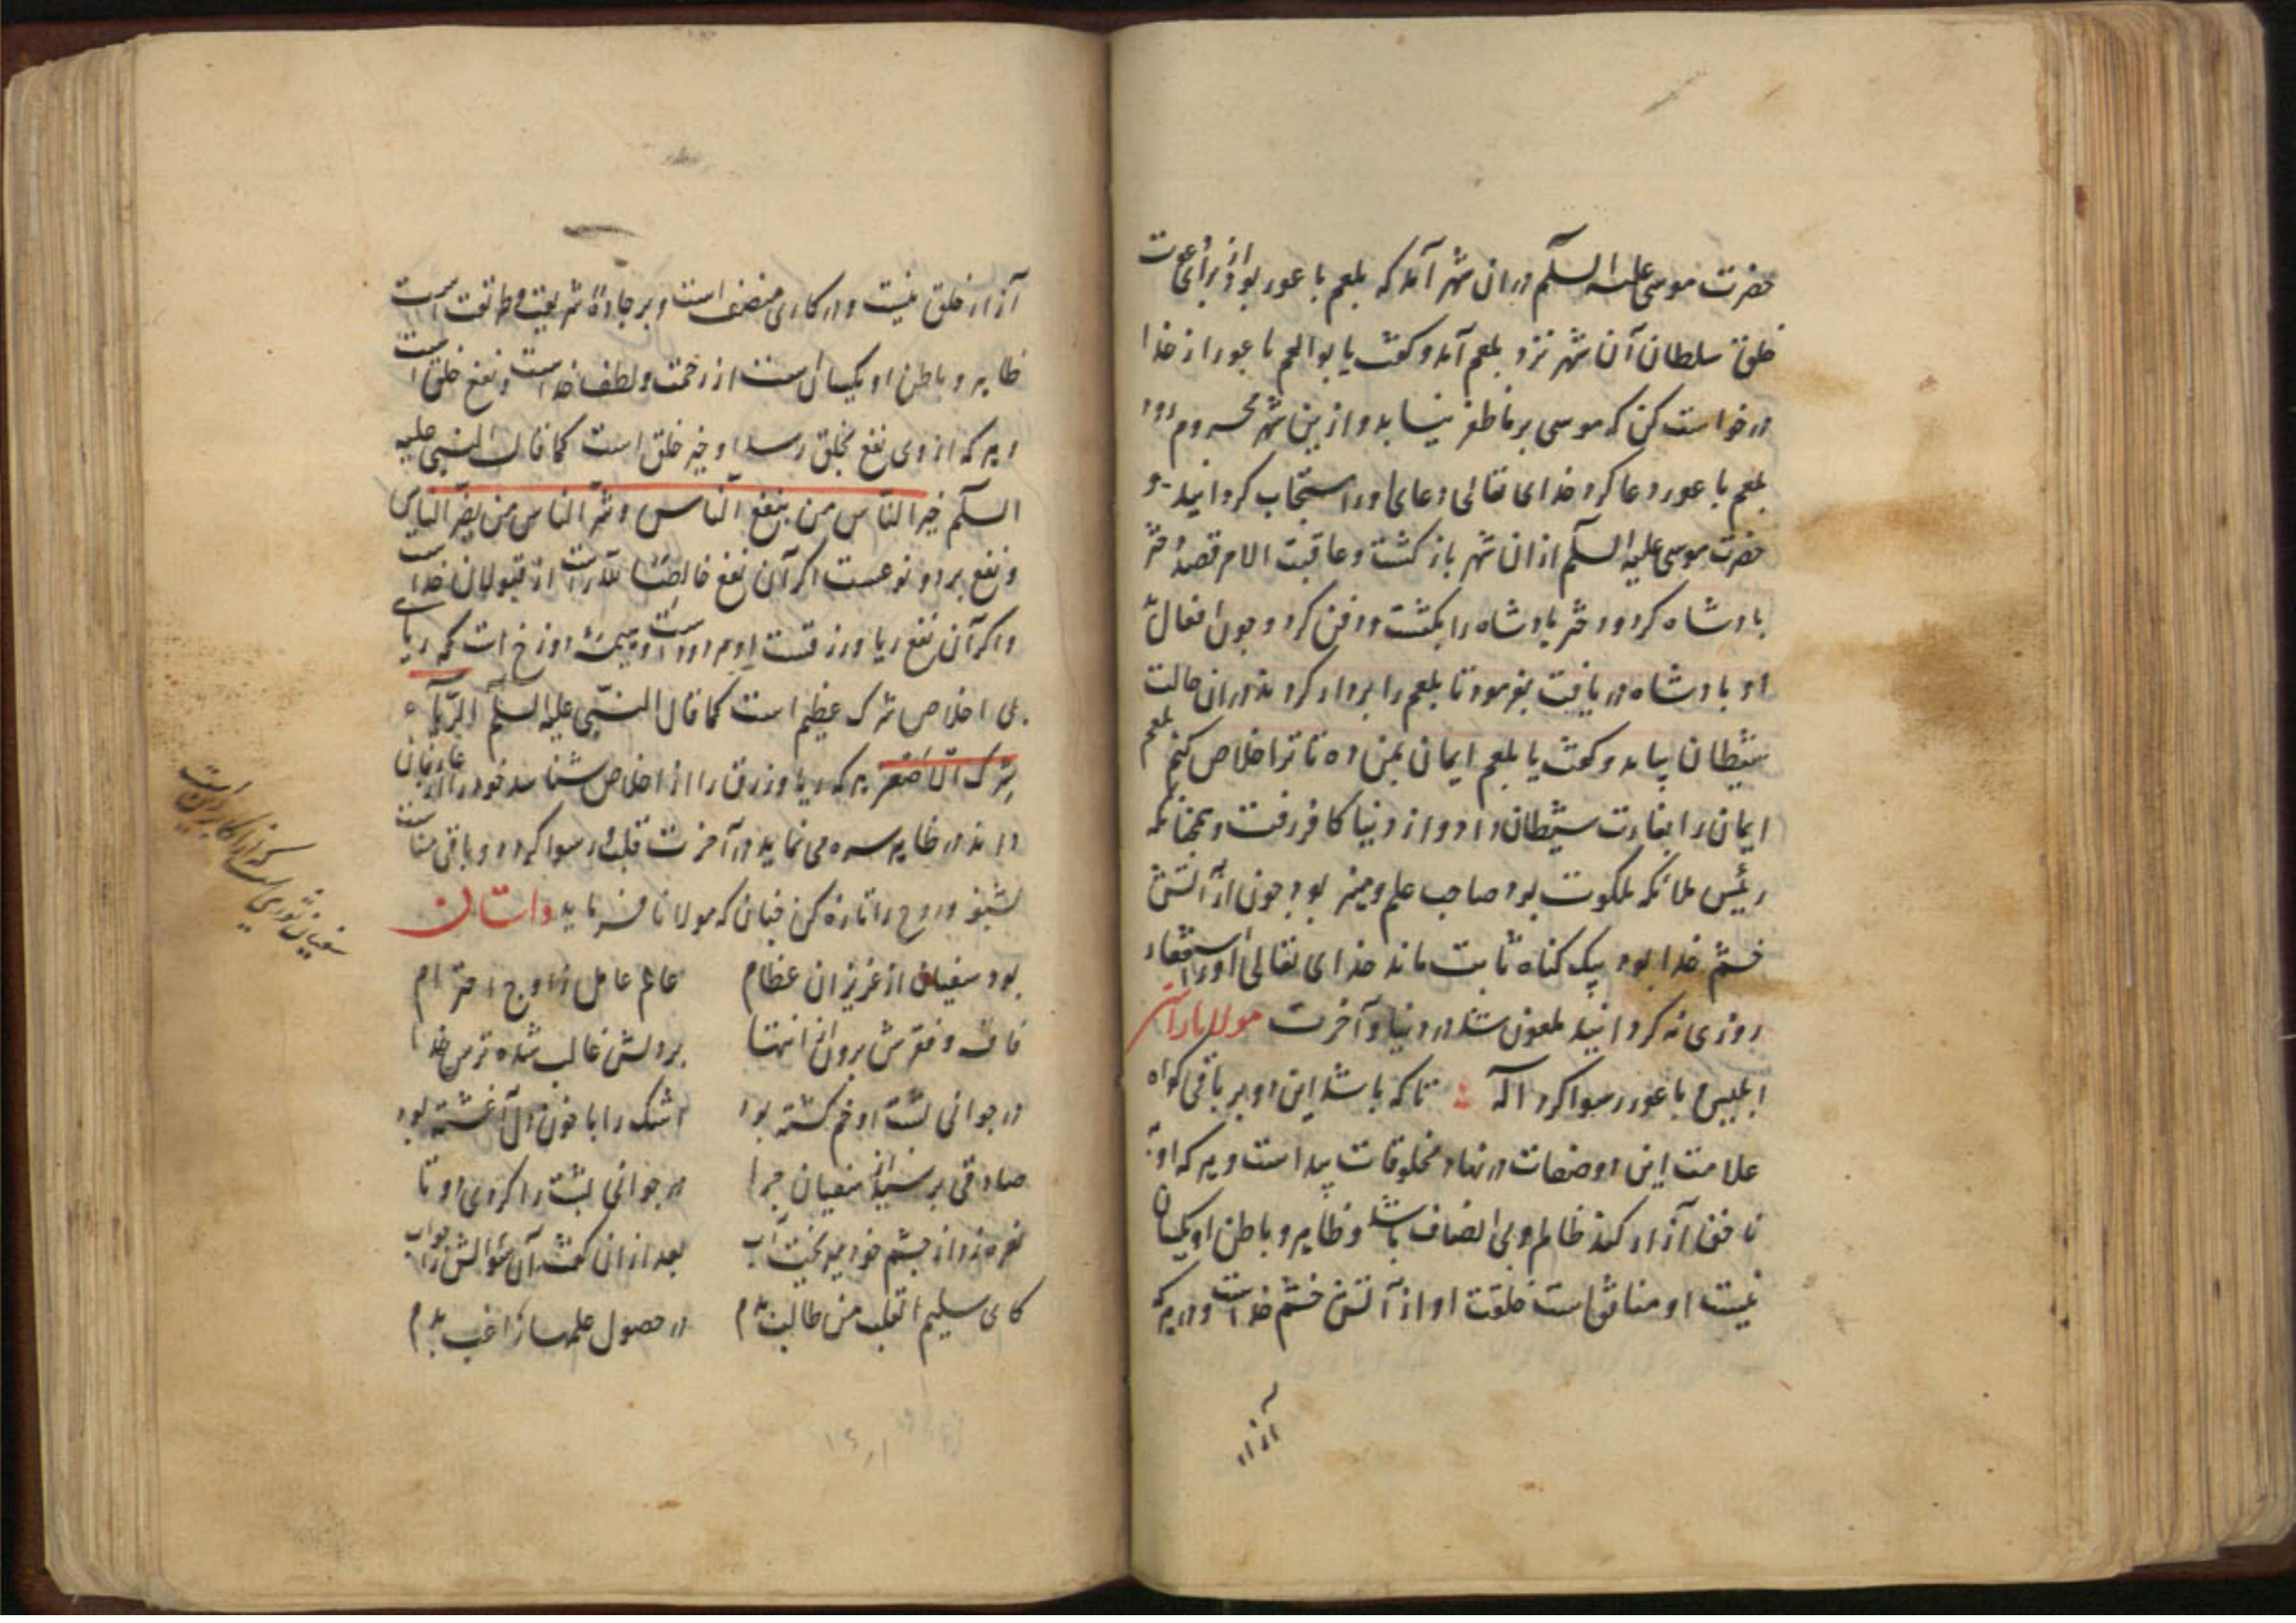 حضرت موسی علیه السلام دران شهر آمد که بلعم باعور بود از برای دعوت
خلق سلطان آن شهر نزد بلعم آمد و کفت یا بوالعم باعور از خدا
درخواست کن که موسی بر ما ظفر نیابد و ازین شهر محروم رود
بلعم باعور دعا کرد خدای تعالی دعای اورا مستجاب کردانید و
حضرت موسی علیه السلام ازان شهر باز کشت و عاقبت الامر قصد دختر
پادشاه کرد و دختر پادشاه را بکشت و دفن کرد و چون افعال بد
او پادشاه دریافت بفرمود تا بلعم را بردار کردند دران حالت
شیطان بیامد و کفت یا بلعم ایمان بمن ده تا ترا خلاص کنم بلعم
ایمان را بغارت شیطان داد و از دنیا کافر رفت و همچنانکه
رئیس ملائکه ملکوت بود صاحب علم و هنر بود چون از آتش
خشم خدا بود بیک کناه ثابت ماند خدای تعالی اورا استغفار
روزی نه کردانید ملعون شد در دنیا و آخرت مولانا راست
ابلیس باعور رسوا کرد اله تا که باشد این دو بر باقی کواه
علامت این دو صفات در نهاد مخلوقات پیداست و هر که او
ناحق آزار کند ظالم و بی انصاف باشد و ظاهر و باطن او یکسان
نیست او منافق است خلقت او از آتش خشم خداست و در هر که
آزار
آزار خلق نیست و در کاری منصف است و بر جادهٔ شریعت و طریقت است
ظاهر و باطن او یکسان است از رحمت و لطف خداست و نفع خلق است
و هر که از وی نفع بخلق رسد او خیر خلق است کما قال النبی علیه
السلام خیر الناس من ینفع الناس و شر الناس من یضر الناس
و نفع بر دو نوعست اکر آن نفع خالصًا لله راست از قبولیان خداست
واکر آن نفع ریا و زرقست او مردود است و هیمهٔ دوزخ است که ریای
بی اخلاص شرک عظیم است کما قال النبی علیه السلام الریاء
شرک الاصغر هر که ریا و زرق را از اخلاص شناسد خود را از عارفان
داند در ظاهر سره می نماید در آخرت قلب رسوا کردد و باقی مناسبت
بشنو و روح را تازه کن چنان که مولانا فرماید داستان
بود سفیان از عزیزان عظام عالم عامل ز اوج احترام
فاقه و فقرش برون از انتها بر دلش غالب شده ترس خدا
در جوانی پشت او خم کشته بود اشک را با خون دل آغشته بود
صادقی پرسید از سفیان چرا در جوانی پشت را کردی دو تا
نعره زد از چشم خود میریخت آب بعد ازان کفت آن سوالش را جواب
کای سلیم القلب من طالب بدم در حصول علمها راغب بدم
سفیان ثوری است که از اکابر دین است